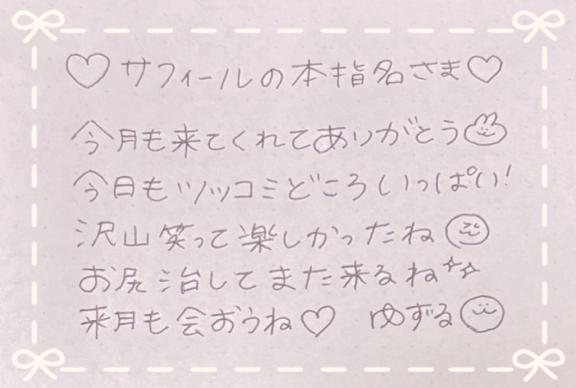 ♡サフィールの本指名さま♡
今月も来てくれてありがとう
今日もツッコミどころいっぱい!
沢山笑って楽しかったね
お尻治してまた来るね
来月も会おうね♡ ゆずる